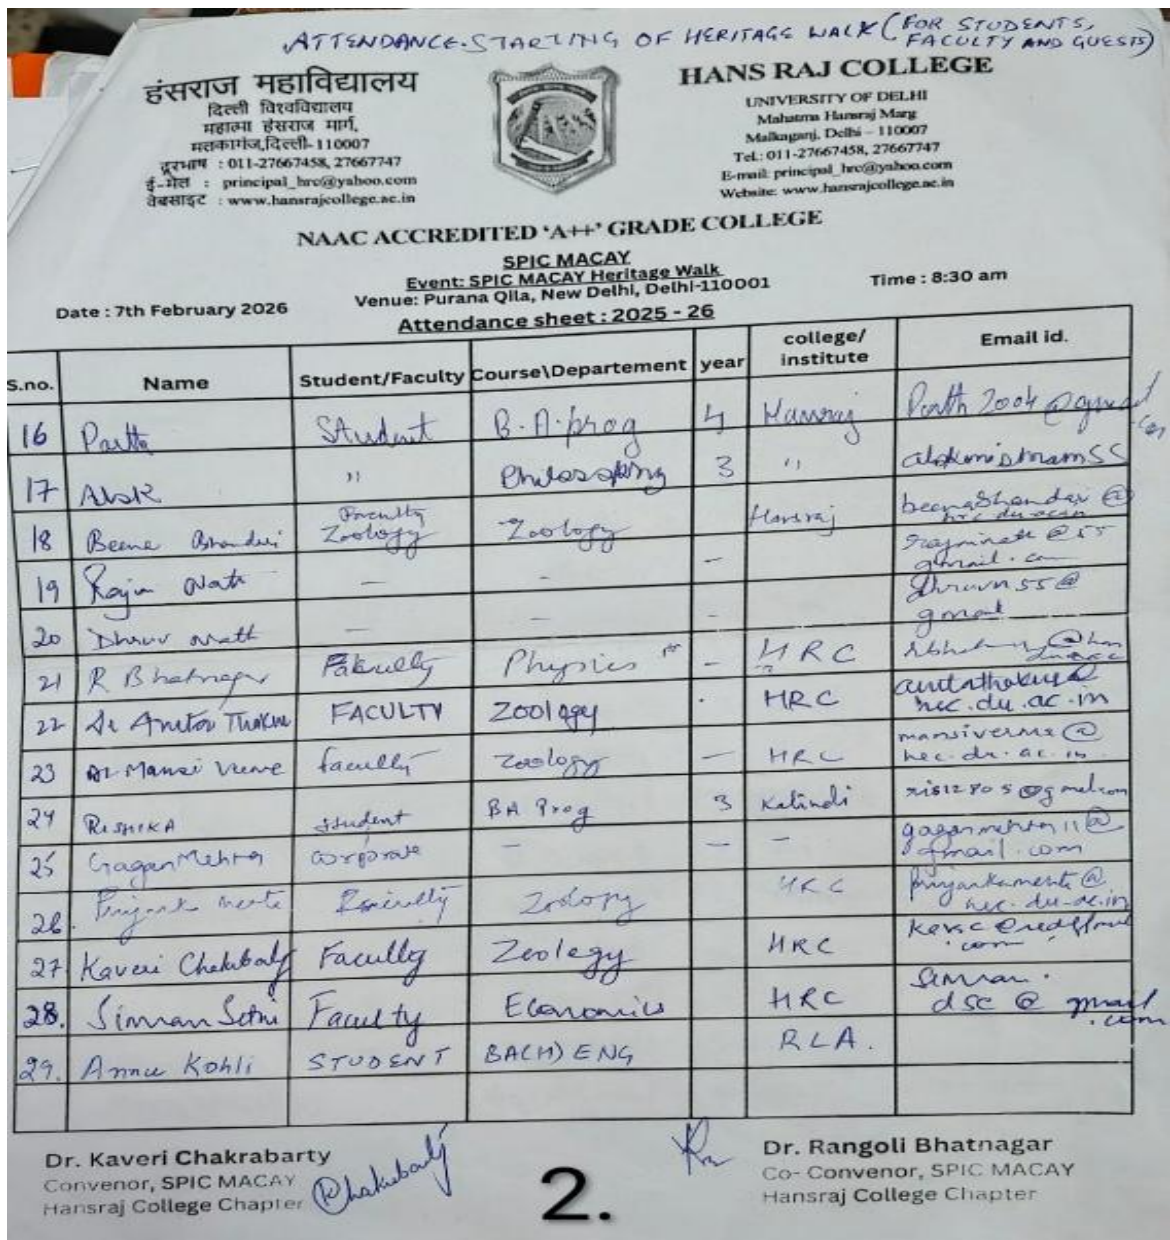 ATTENDANCE-STARTING OF HERITAGE WALK (FOR STUDENTS, FACULTY AND GUESTS)
हंसराज महाविद्यालय
दिल्ली विश्वविद्यालय
महात्मा हंसराज मार्ग,
मलकागंज,दिल्ली-110007
दूरभाष : 011-27667458, 27667747
ई-मेल : principal_hrc@yahoo.com
वेबसाइट : www.hansrajcollege.ac.in
HANS RAJ COLLEGE
UNIVERSITY OF DELHI
Mahatma Hansraj Marg
Malkaganj, Delhi – 110007
Tel.: 011-27667458, 27667747
E-mail: principal_hrc@yahoo.com
Website: www.hansrajcollege.ac.in
NAAC ACCREDITED 'A++' GRADE COLLEGE
SPIC MACAY
Event: SPIC MACAY Heritage Walk
Venue: Purana Qila, New Delhi, Delhi-110001
Date : 7th February 2026
Time : 8:30 am
Attendance sheet : 2025 - 26
S.no. Name Student/Faculty Course\Departement year college/institute Email id.
16 Parth Student B.A.prog 4 Hansraj Parth2004@gmail.com
17 Alok " Philosophy 3 "
18 Beena Bhandari Faculty Zoology Zoology Hansraj
19 Raju Nath — - —
20 Dhruv Nath — - -
21 R Bhatnagar Faculty Physics - HRC
22 Dr Anita Thakur FACULTY Zoology - HRC anitathakur@hrc.du.ac.in
23 Dr Mansi Verma faculty Zoology — HRC mansiverma@hrc.du.ac.in
24 RISHIKA student BA Prog 3 Kalindi
25 Gagan Mehta Corporate - — - gaganmehta11@gmail.com
26. Priyanka Mehta Faculty Zoology HRC priyankamehta@hrc.du.ac.in
27 Kaveri Chakrabarty Faculty Zoology HRC
28. Simran Sethi Faculty Economics HRC simran.dsc@gmail.com
29. Annu Kohli STUDENT BA(H) ENG RLA.
Dr. Kaveri Chakrabarty
Convenor, SPIC MACAY
Hansraj College Chapter
KChakrabarty
2.
Dr. Rangoli Bhatnagar
Co- Convenor, SPIC MACAY
Hansraj College Chapter